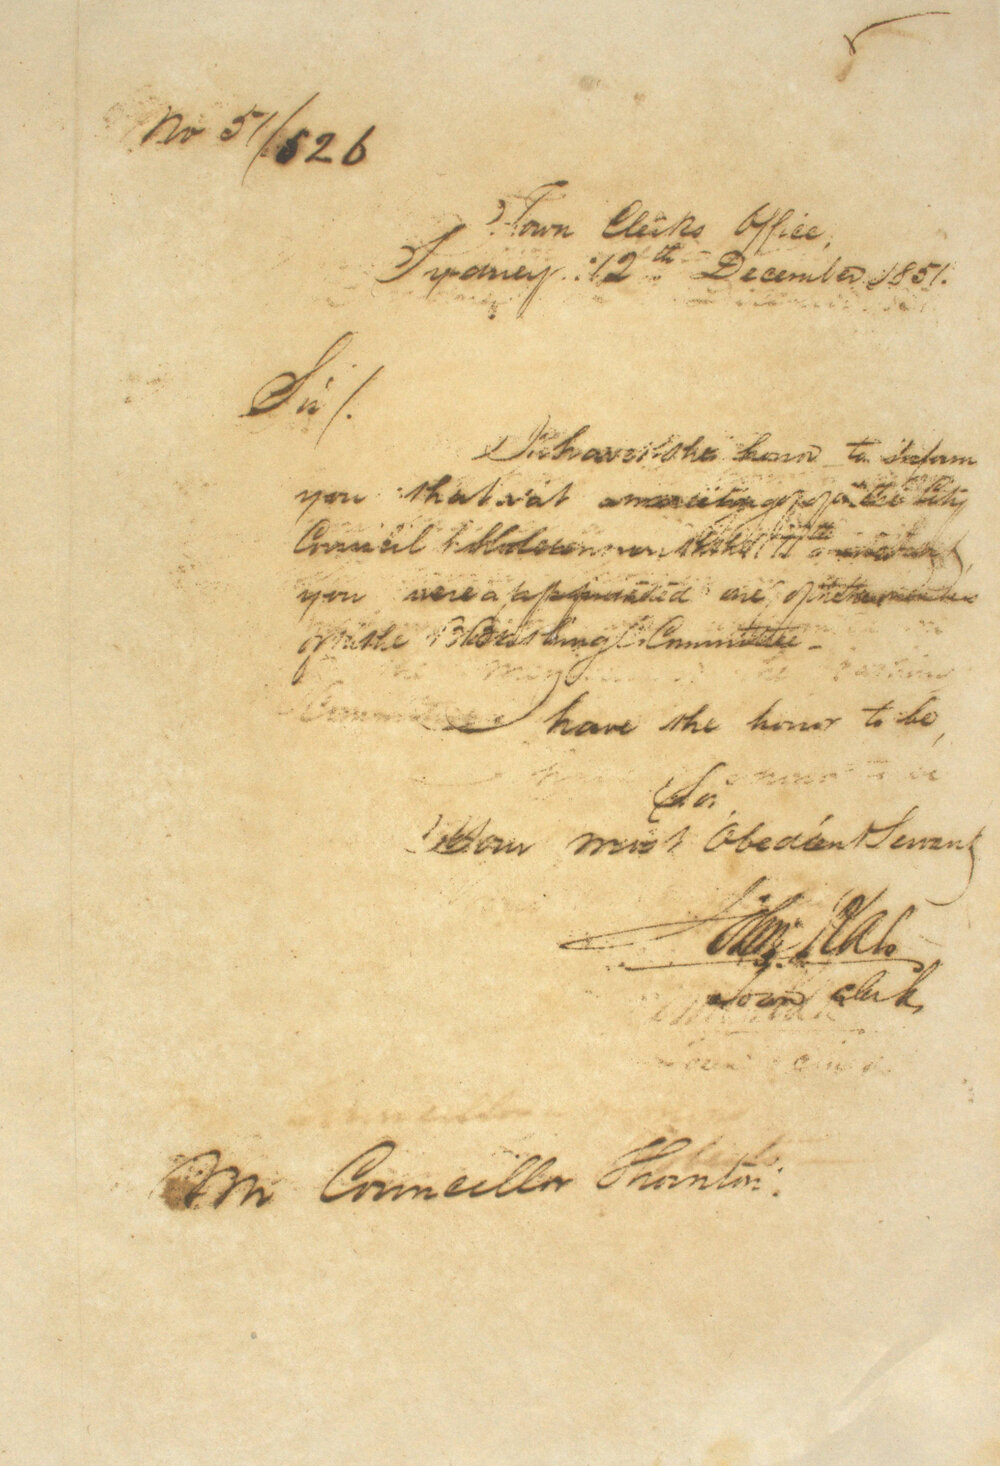 No 51/526
Town Clerks Office,
Sydney 12th December 1851.
Sir/.
I have the honor to inform
you that at a meeting of the City
Council holden on the 11th instant,
you were appointed one of the members
of the Committee -
I have the honor to be,
Sir,
Your most Obedient Servant
Town Clerk
Mr Councillor Thornton.